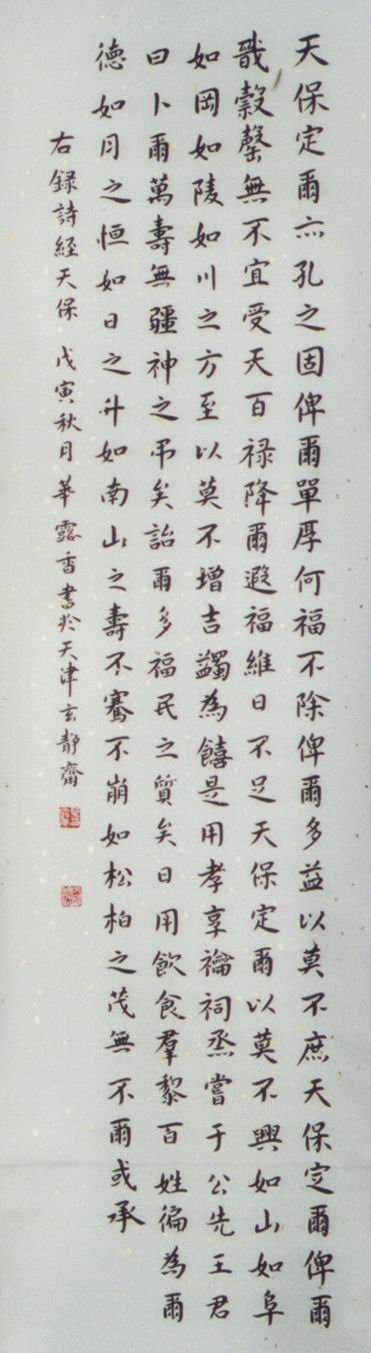 天保定爾亦孔之固俾爾單厚何福不除俾爾多益以莫不庶天保定爾俾爾
戩穀罄無不宜受天百祿降爾遐福維日不足天保定爾以莫不興如山如阜
如岡如陵如川之方至以莫不增吉蠲為饎是用孝享禴祠烝嘗于公先王君
曰卜爾萬壽無疆神之弔矣詒爾多福民之質矣日用飲食羣黎百姓徧為爾
德如月之恒如日之升如南山之壽不騫不崩如松柏之茂無不爾或承
右録詩經天保 戊寅秋月華露香書於天津玄靜齋